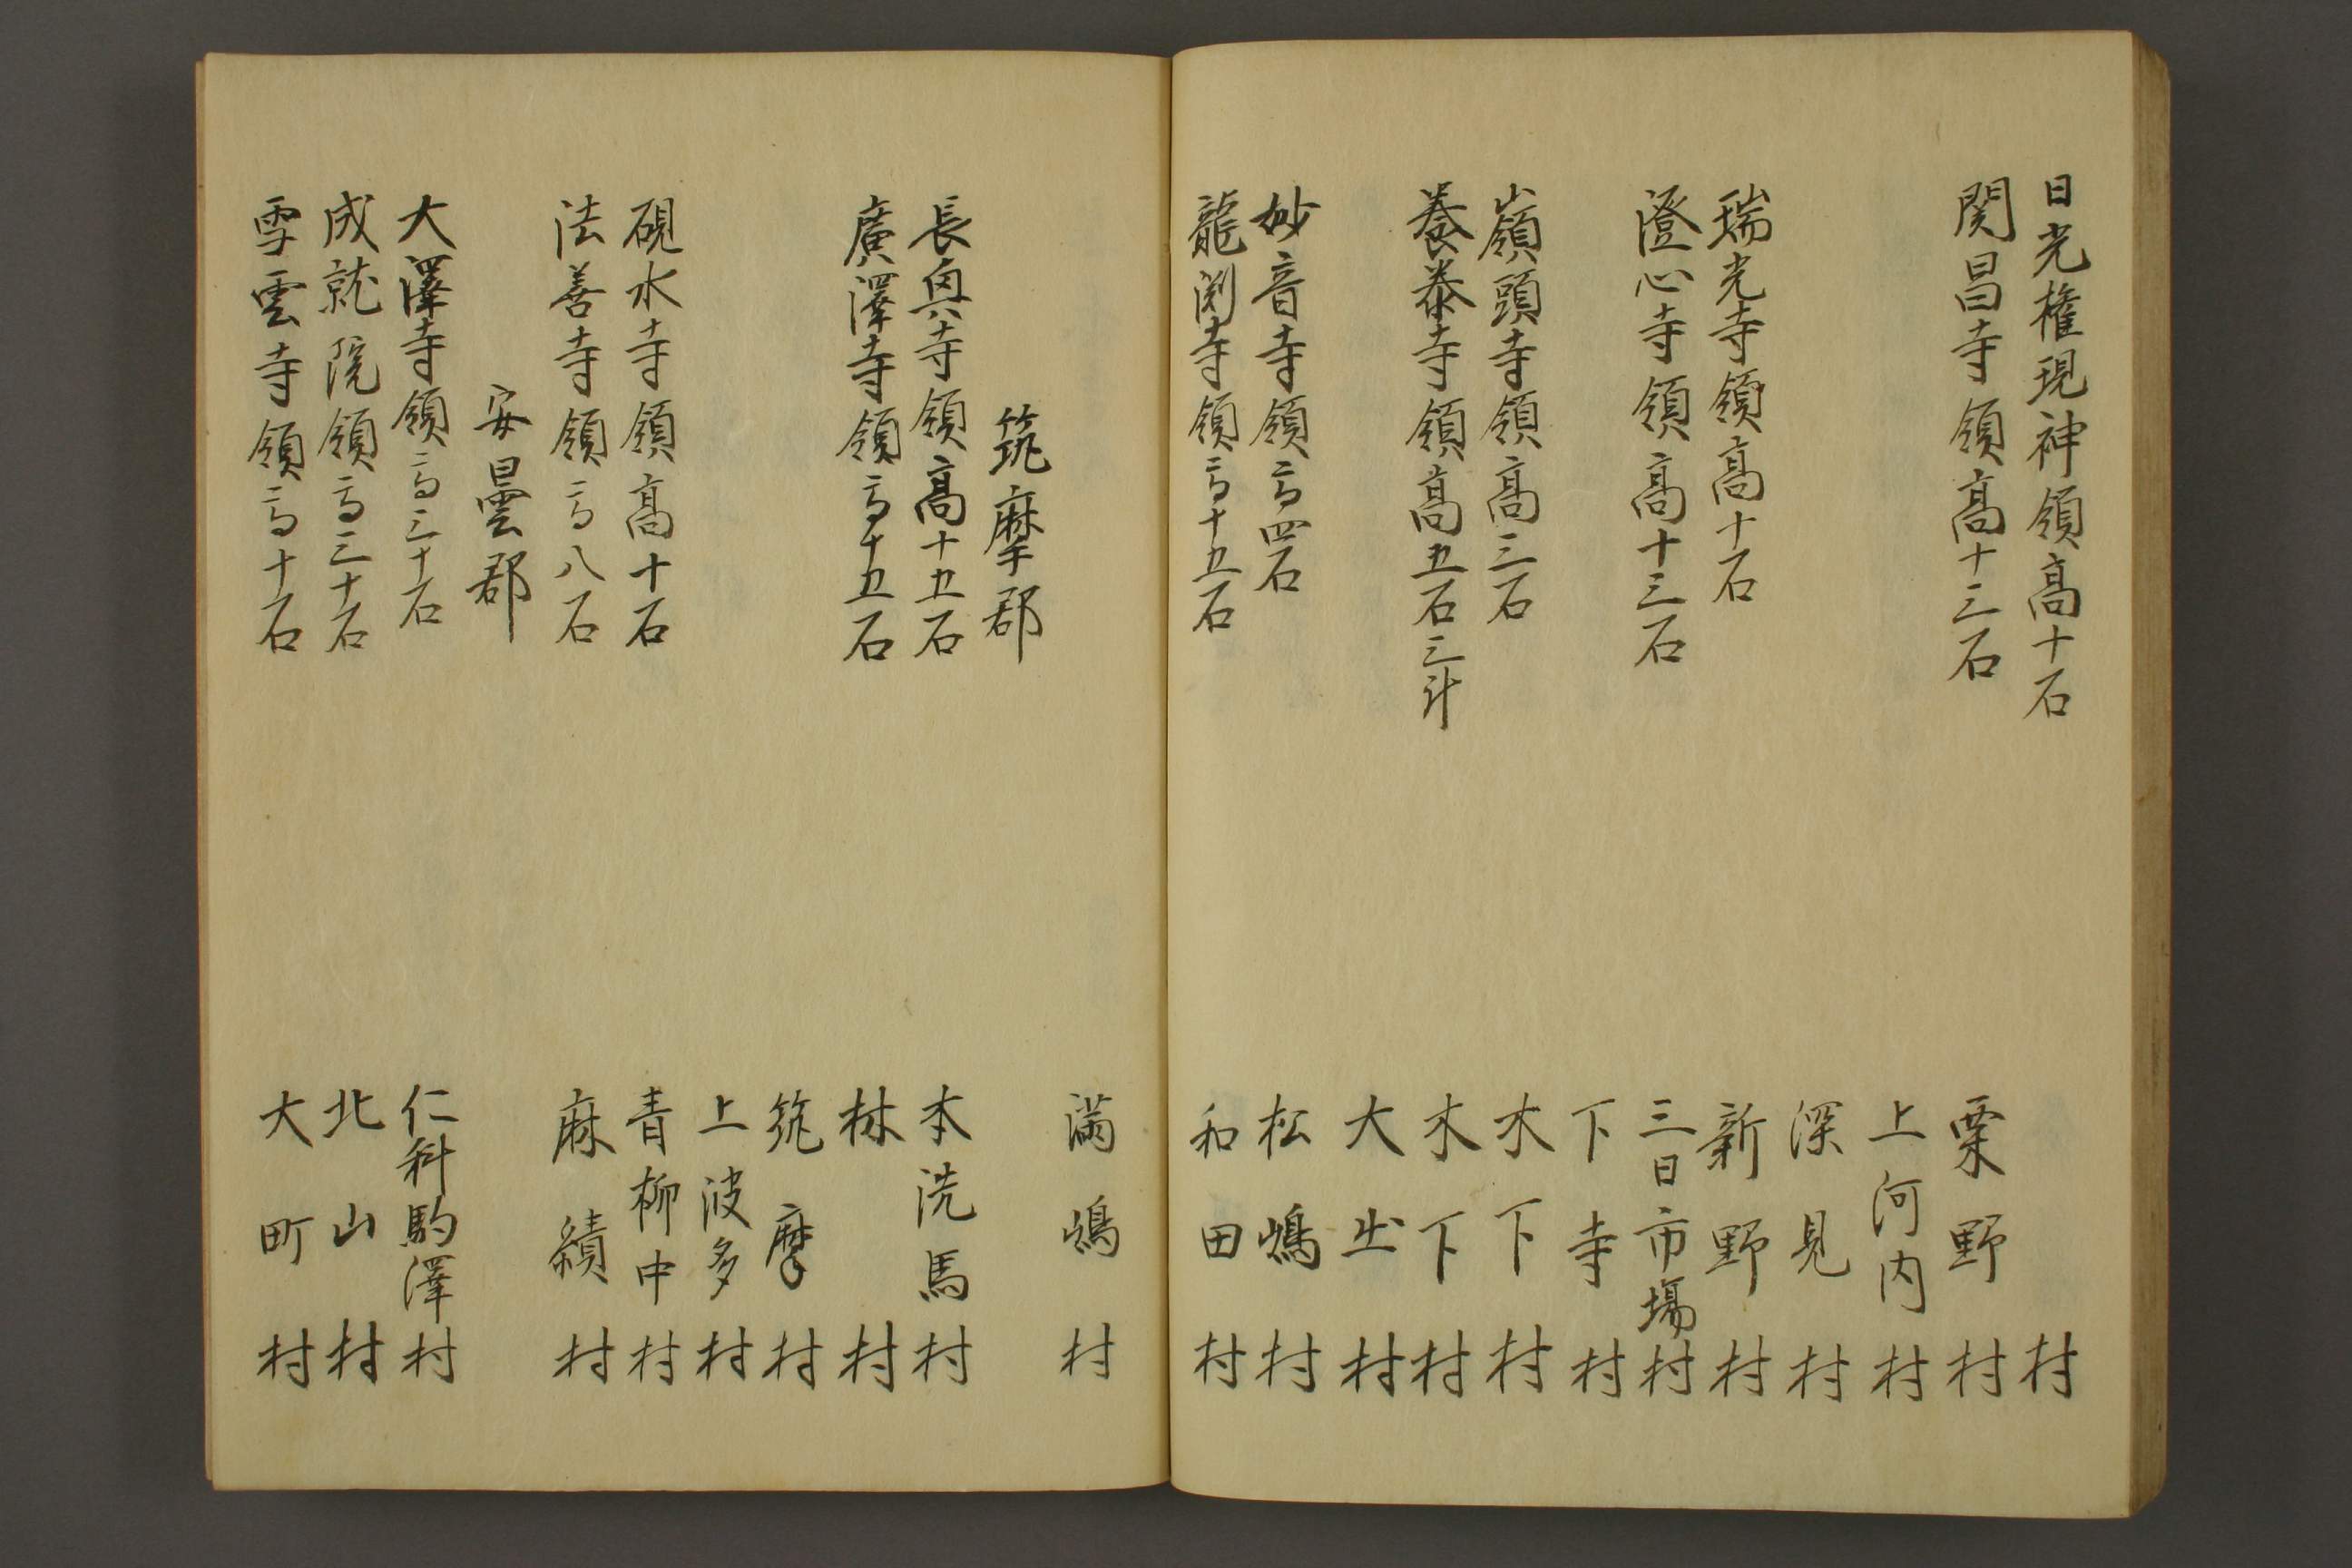 日光権現神領高十石　村
関昌寺領高十三石　栗野村
上河内村
深見村
瑞光寺領高十石　新野村
澄心寺領高十三石　三日市場村
下寺村
嶺頭寺領高三石　木下村
養泰寺領高五石三斗　木下村
大出村
妙音寺領高四石　松嶋村
龍渕寺領高十五石　和田村
満嶋村
筑摩郡
長興寺領高十五石　本洗馬村
廣澤寺領高十五石　林村
筑摩村
上波多村
硯水寺領高十石　青柳中村
法善寺領高八石　麻績村
安曇郡
大澤寺領高三十石　仁科駒澤村
成就院領高三十石　北山村
雪雲寺領高十石　大町村